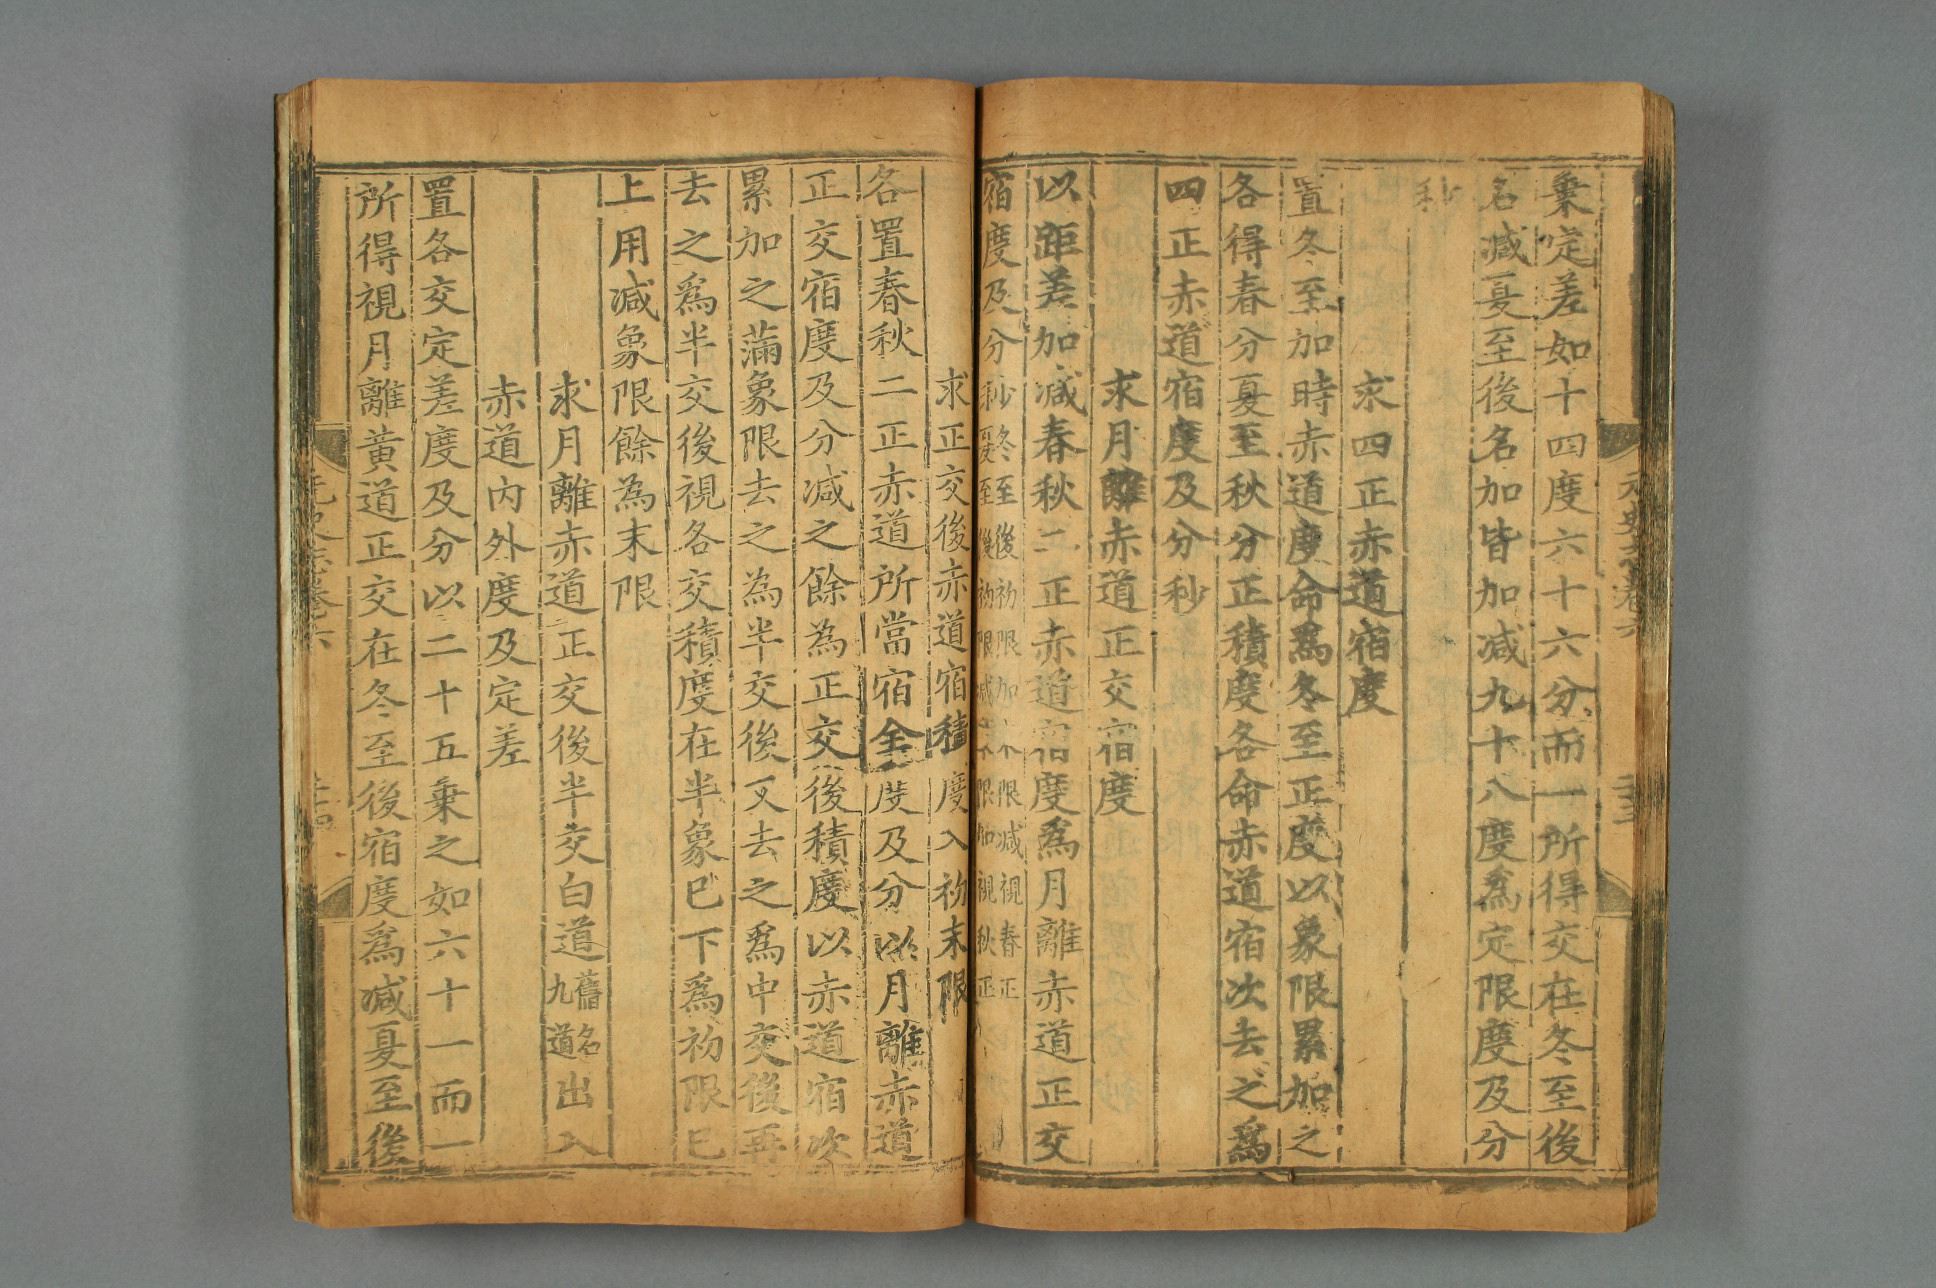 乗定差如十四度六十六分而一所得交在冬至後
名減夏至後名加皆加減九十八度爲定限度及分
秒
求四正赤道宿度
置冬至加時赤道度命爲冬至正度以象限累加之
各得春分夏至秋分正積度各命赤道宿次去之爲
四正赤道宿度及分秒
求月離赤道正交宿度
以距差加減春秋二正赤道宿度爲月離赤道正交
宿度及分秒冬至後初限加末限減視春正
夏至後初限減末限加視秋正
求正交後赤道宿積度入初末限
各置春秋二正赤道所當宿全度及分以月離赤道
正交宿度及分減之餘為正交後積度以赤道宿次
累加之滿象限去之為半交後又去之爲中交後再
去之爲半交後視各交積度在半象已下爲初限已
上用減象限餘為末限
求月離赤道正交後半交白道舊名九道出入
赤道內外度及定差
置各交定差度及分以二十五乗之如六十一而一
所得視月離黃道正交在冬至後宿度爲減夏至後
元史志卷六